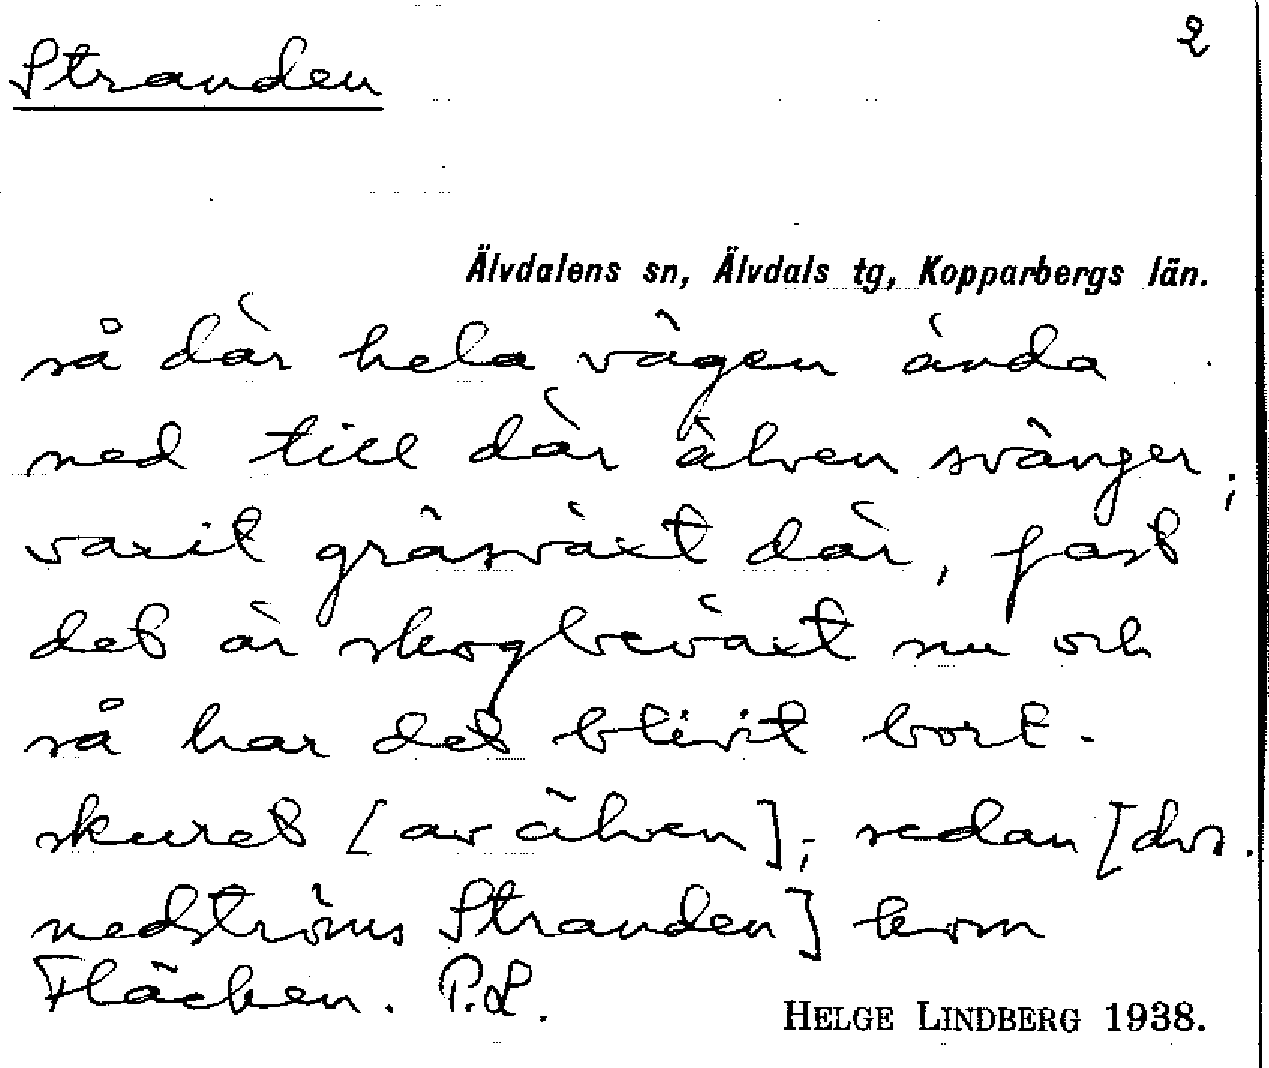 2
Stranden
Älvdalens sn, Älvdals tg, Kopparbergs län.
så där hela vägen ända
ned till där älven svänger;
vaxit gräsväxt där, fast
det är skogbeväxt nu och
så har det blivit bort-
skuret [av älven]; sedan [dvs.
nedströms Stranden] kom
Fläcken. P.L.
HELGE LINDBERG 1938.